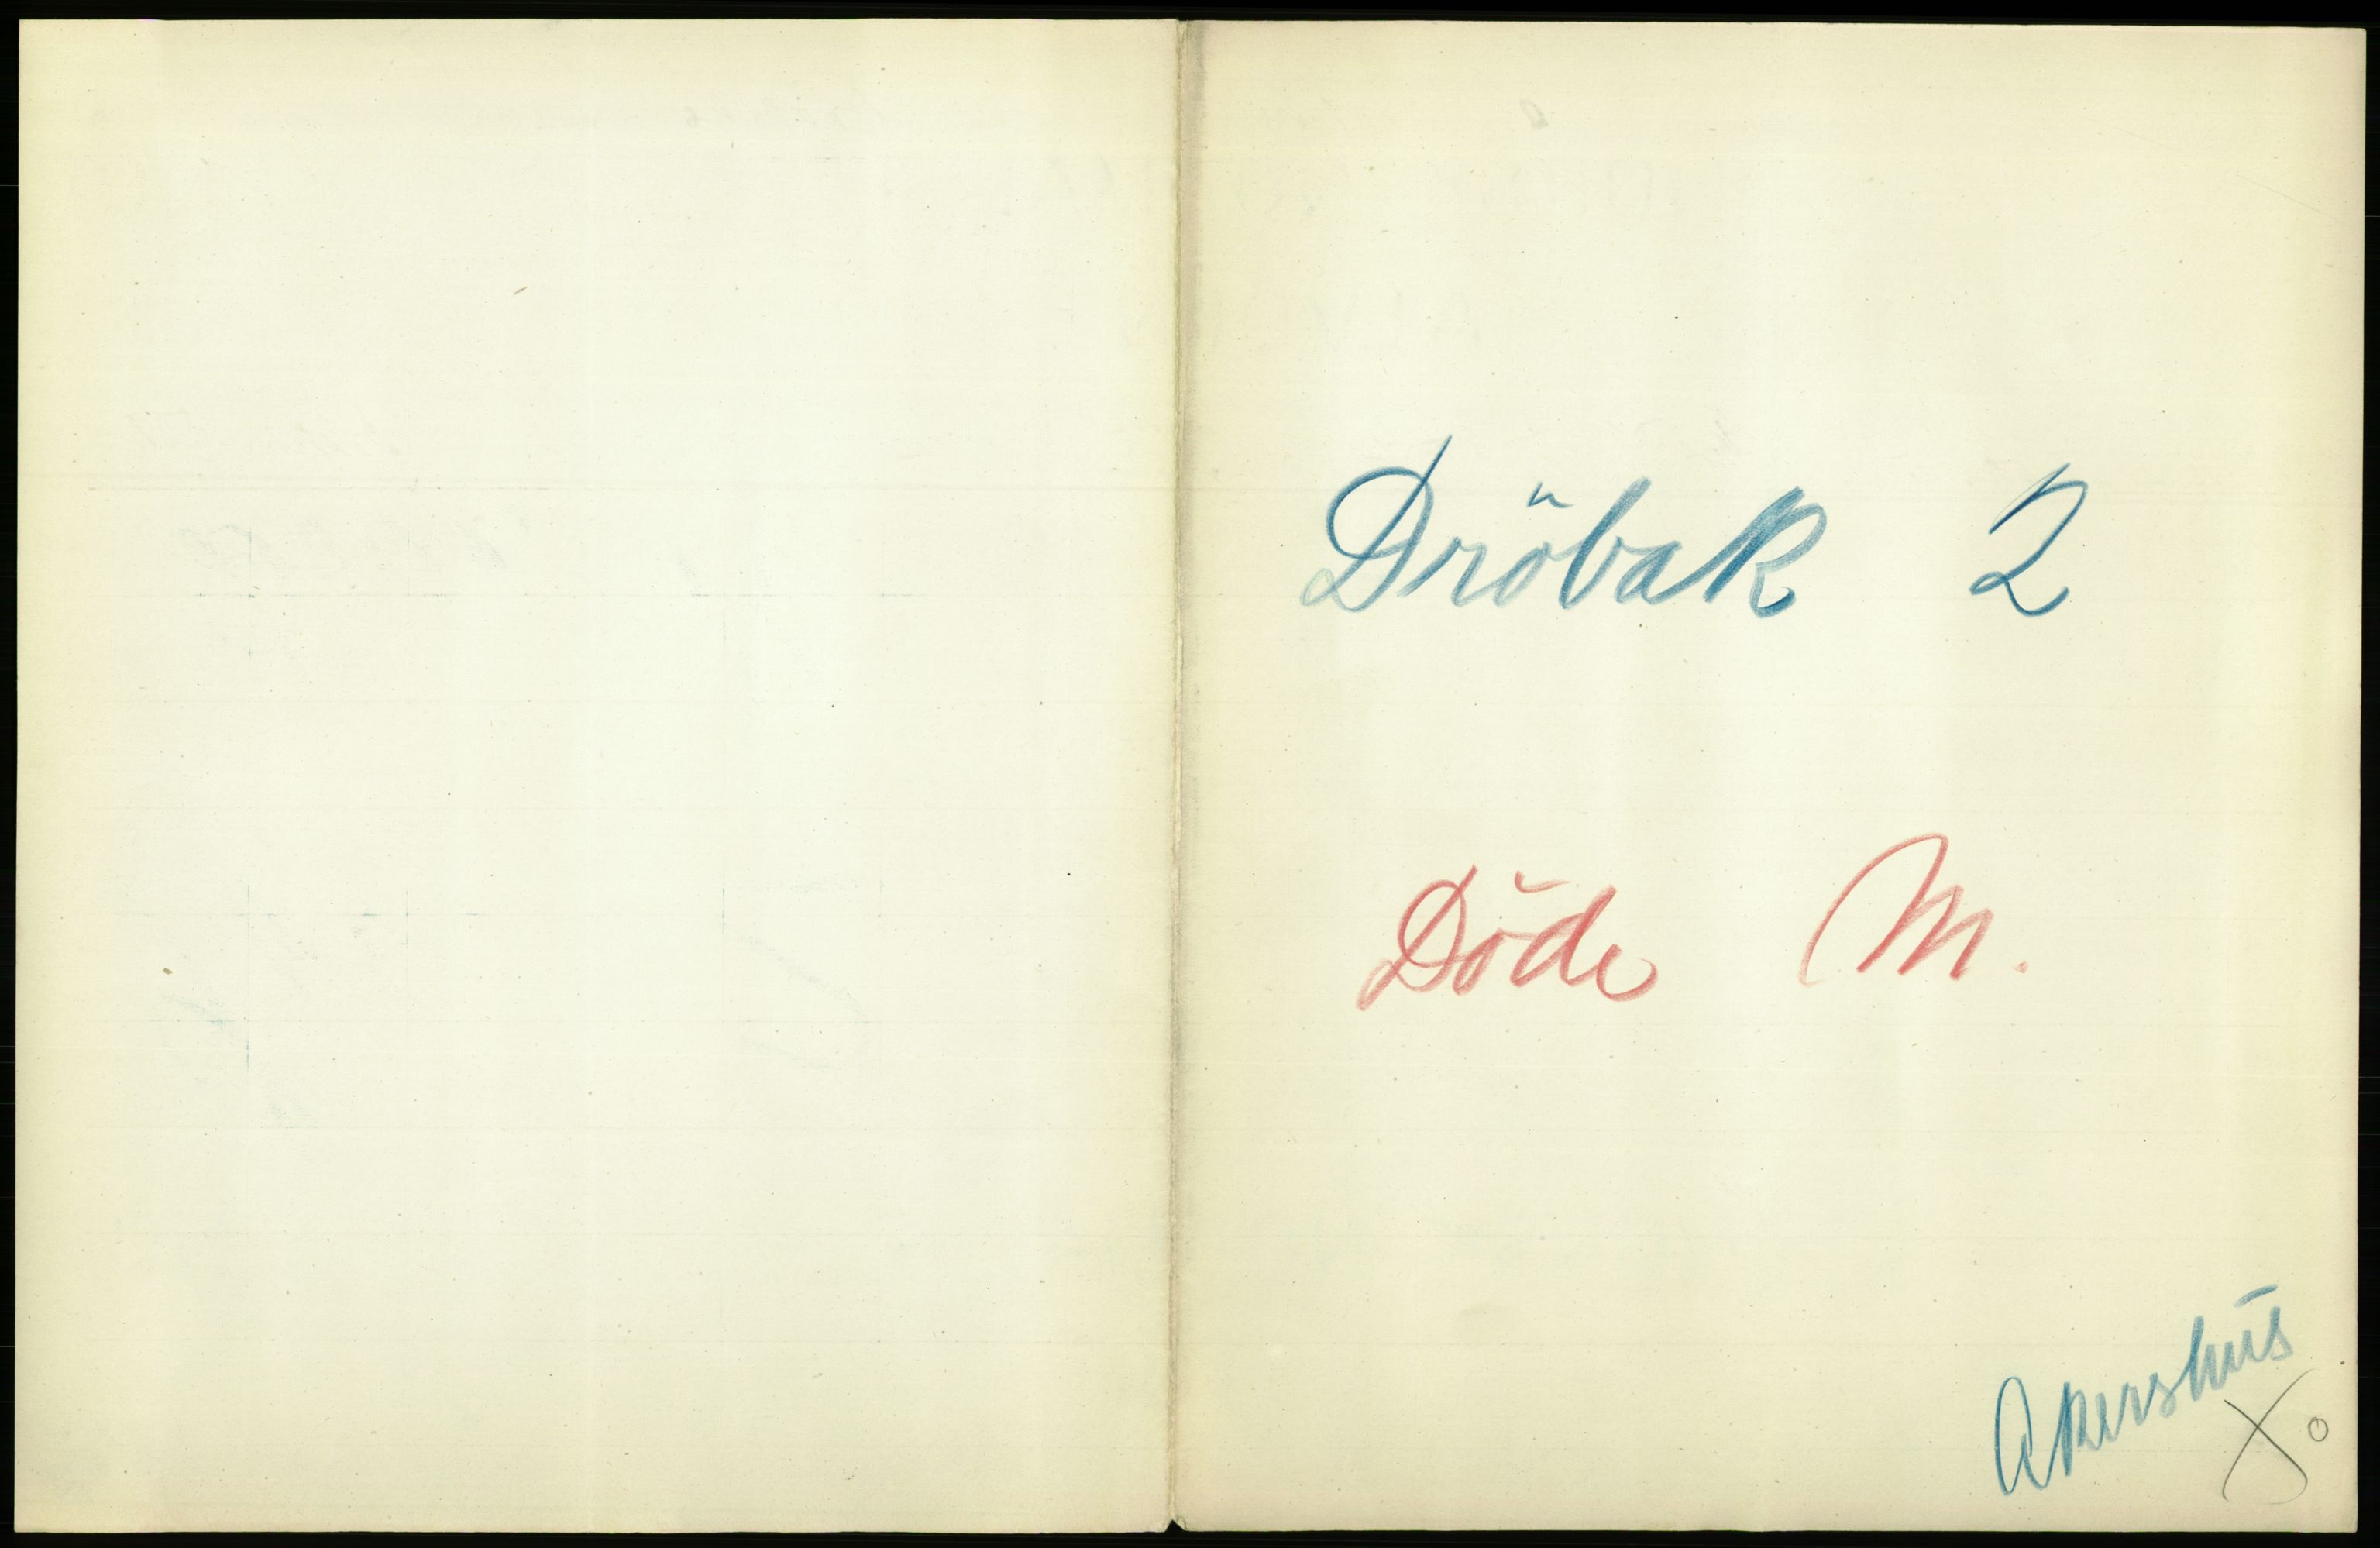 Dröbak 2
Döde M.
Akershus
X o